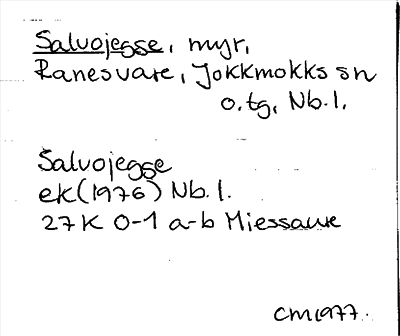 Salvojegge, myr,
Ranesvare, Jokkmokks sn
o. tg, Nb. l.
Salvojegge
ek (1976) Nb. l.
27 K 0-1 a-b Miessaure
CM1977.